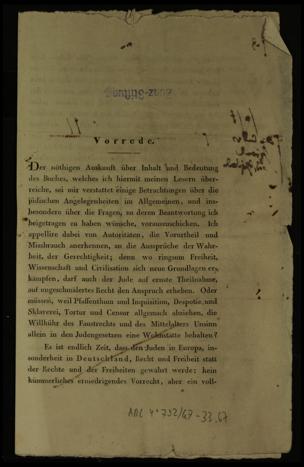 Zunz-Stiftung
Vorrede.
Der nöthigen Auskunft über Inhalt und Bedeutung
des Buches, welches ich hiermit meinen Lesern über-
reiche, sei mir verstattet einige Betrachtungen über die
jüdischen Angelegenheiten im Allgemeinen, und ins-
besondere über die Fragen, zu deren Beantwortung ich
beigetragen zu haben wünsche, vorauszuschicken. Ich
appellire dabei von Autoritäten, die Vorurtheil und
Missbrauch anerkennen, an die Aussprüche der Wahr-
heit, der Gerechtigkeit; denn wo ringsum Freiheit,
Wissenschaft und Civilisation sich neue Grundlagen er-
kämpfen, darf auch der Jude auf ernste Theilnahme,
auf ungeschmälertes Recht den Anspruch erheben. Oder
müssen, weil Pfaffenthum und Inquisition, Despotie und
Sklaverei, Tortur und Censur allgemach abziehen, die
Willkühr des Faustrechts und des Mittelalters Unsinn
allein in den Judengesetzen eine Wohnstätte behalten?
Es ist endlich Zeit, dass den Juden in Europa, in-
sonderheit in Deutschland, Recht und Freiheit statt
der Rechte und der Freiheiten gewährt werde: kein
kümmerliches erniedrigendes Vorrecht, aber ein voll-
ARC 4° 792/G7-33.67